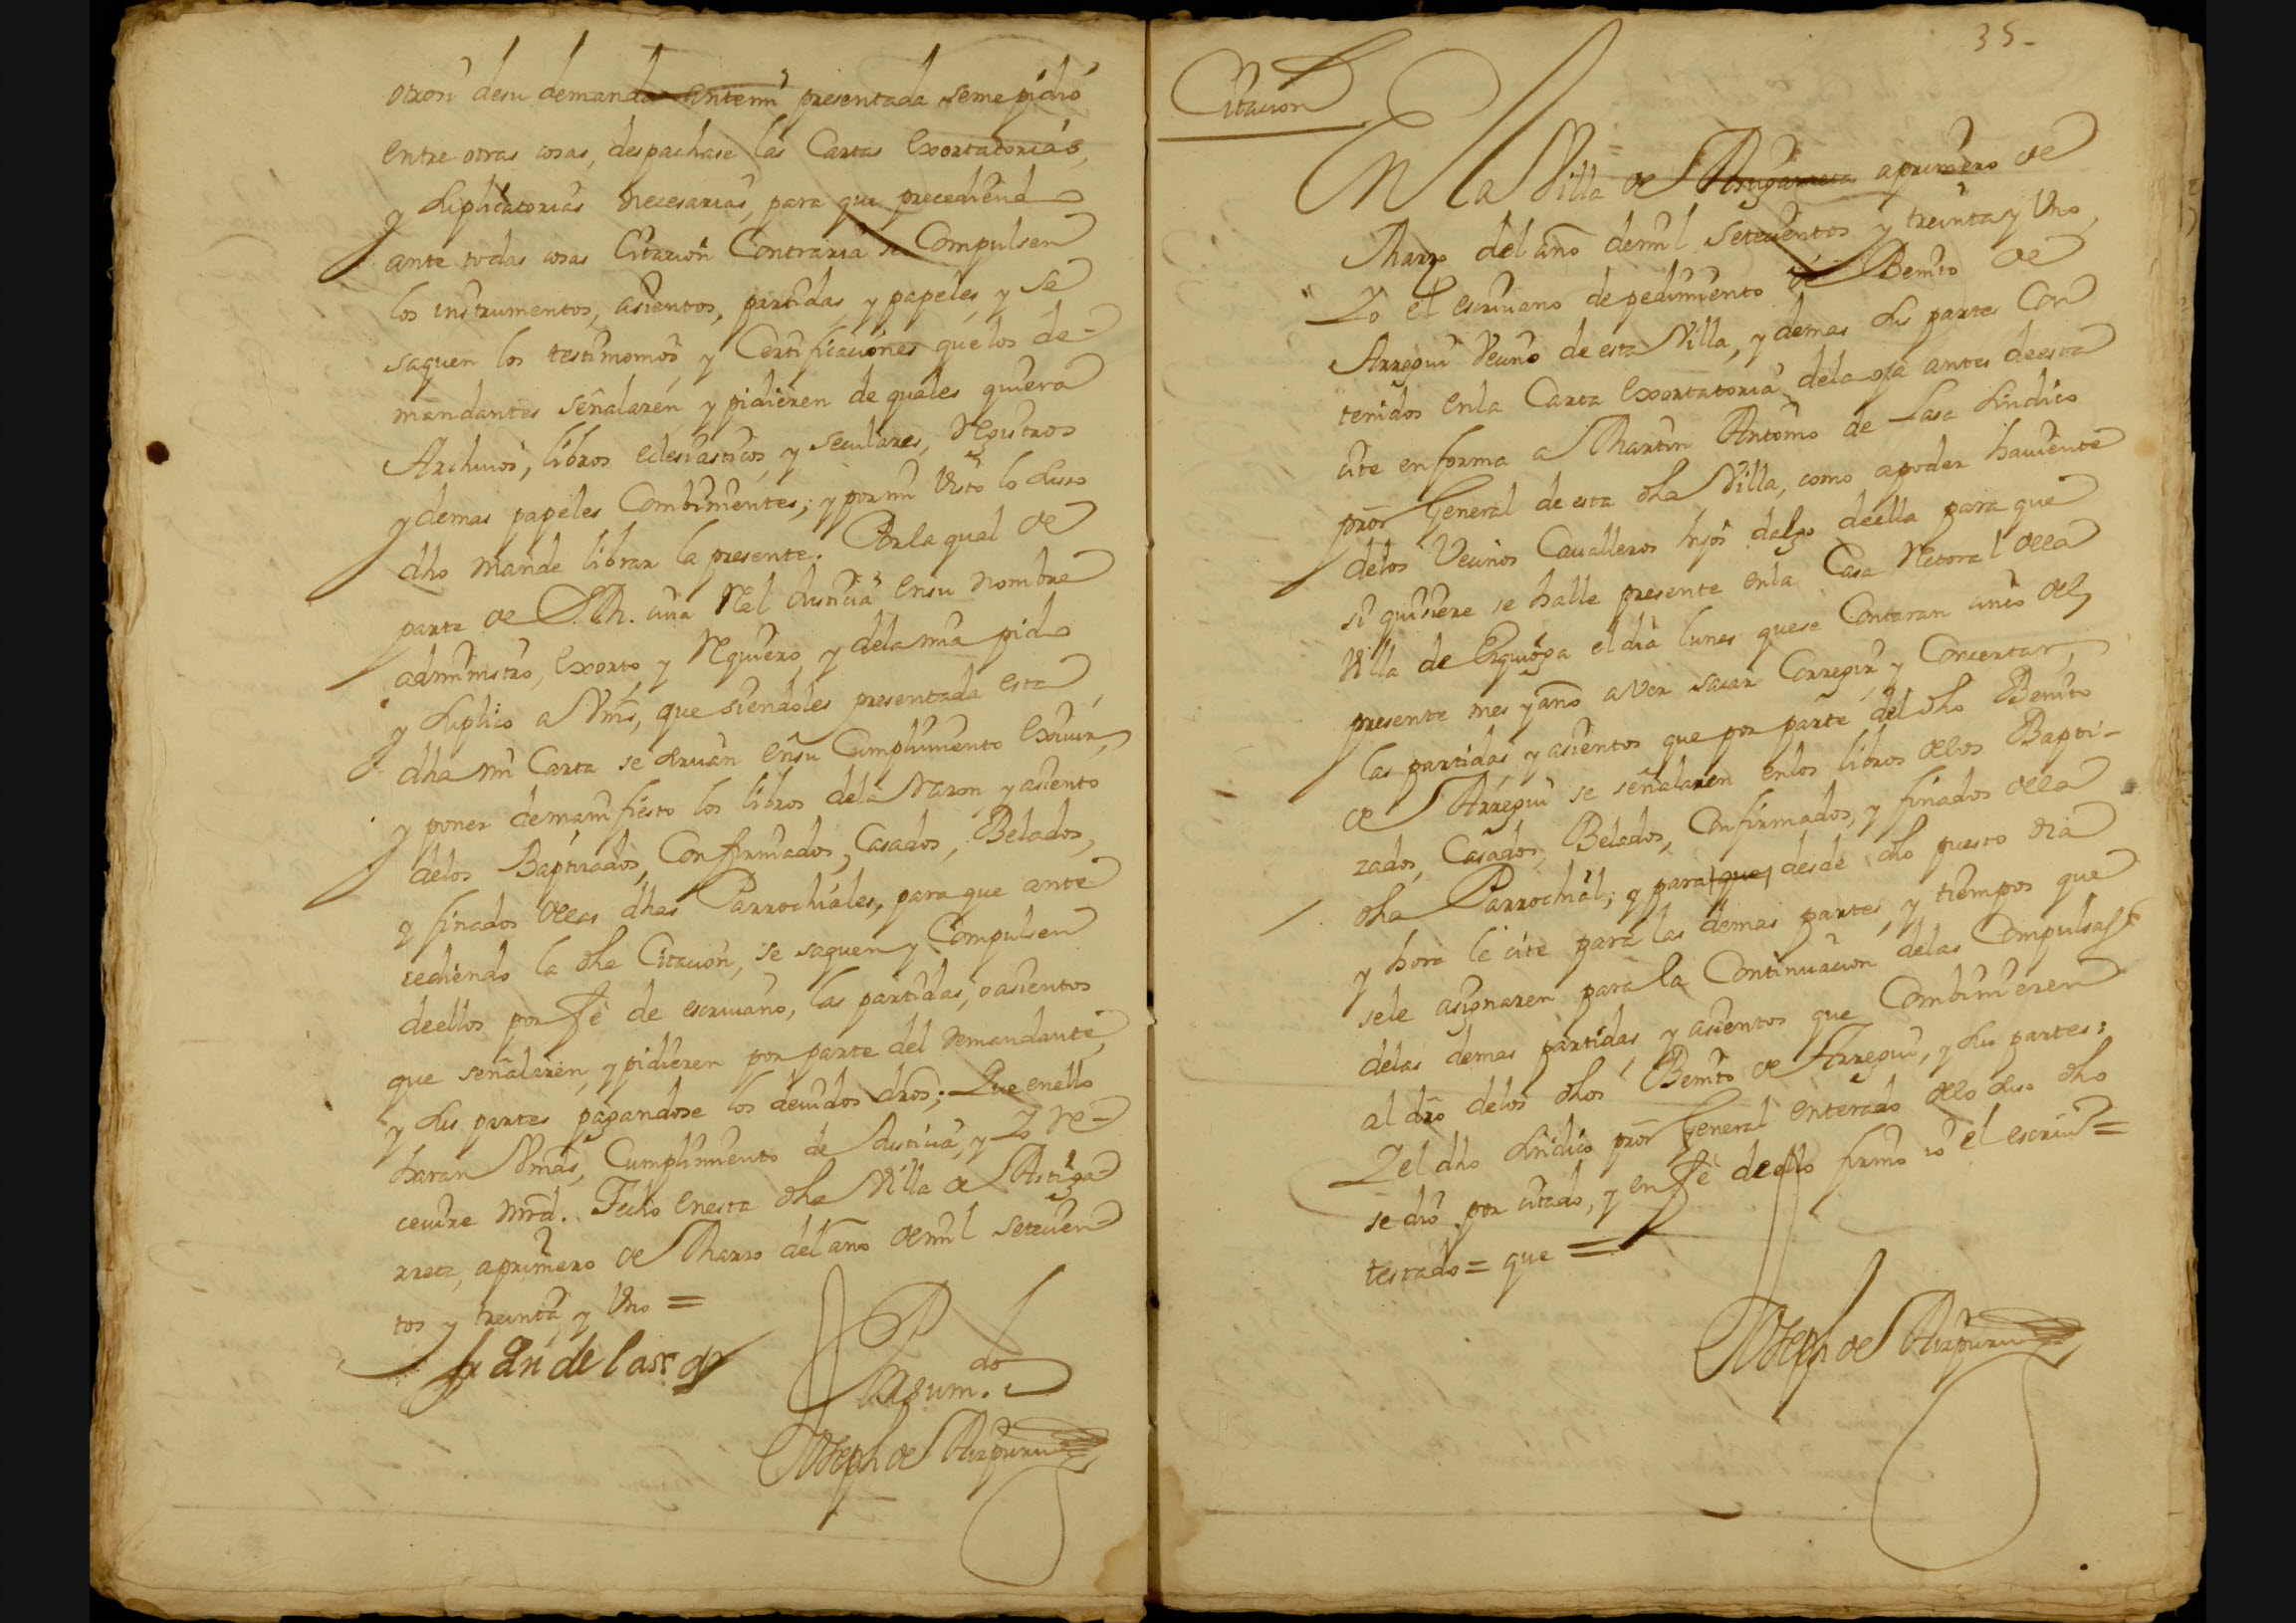 otrosi desu demanda antemi presentada seme pidio
entre otras cosas, despachase las Cartas exortatorias,
y Suplicatorias necesarias, para que precediend
ante todas cosas Citacion Contraria se Compulsen
los instrumentos, asientos, partidas, y papeles, y se
saquen los testimonios, y Certificaciones que los de-
mandantes señalaren, y pidieren de quales quiera
Archivos, libros eclesiasticos, y seculares, Registros
y demas papeles Combinientes; y por mi Visto lo Suso
dho mande librar la presente. Por la qual de
parte de S. M. cuia Rel Justicia ensu nombre
administro, exorto, y Requiero, y dela mia pido
y Suplico a Vmds, que siendoles presentada esta
dha mi Carta se sirvan ensu Cumplimiento exivir,
y poner de manifiesto los libros dela Razon y asiento
delos Baptizados, Confirmados, Casados, Belados,
y finados dellas dhas Parrochiales, para que ante
cediendo la dha Citacion, se saquen y Compulsen
deellos por fé de escrivano, las partidas, o asientos
que señalaren, y pidieren por parte del demandante,
y Sus partes pagandose los devidos dros; Que enello
haran Vmds, Cumplimiento de Justicia, y Yo Re-
cevire mrd. Fecho enesta dha Villa de Astiga-
rreta, a primero de Marzo del año de mil setecien-
tos y treinta y Uno =
Por su mdo
Joseph de Aizpuru
35-
Citacion
En la Villa de Astigarreta a primero de
Marzo del año de mil setecientos y treinta y Uno,
Yo el escrivano de pedimiento de Benito de
Arregui Vecino de esta Villa, y demas Sus partes Con
tenidos enla Carta exortatoria dela oja antes de esta
cite en forma a Martin Antonio de Lasa Sindico
pror General de esta dha Villa, como a poder haviente
delos Vecinos Cavalleros hijos dalgo deella para que
si quisiere se halle presente enla Casa Retoral dela
Villa de Ezquioga el dia lunes quese Contaran cinco del
presente mes y año a ver sacar Corregir, y Concertar,
las partidas, y asientos que por parte del dho Benito
de Arregui se señalaren enlos libros delos Bapti-
zados, Casados, Belados, Confirmados, y finados dela
dha Parrochial; y para que desde dho puesto dia
y hora le cite para las demas partes, y tiempos que
sele asignaren para la Continuacion delas Compulsas
delas demas partidas, y asientos que Combinieren
al dro delos dhos Benito de Arregui, y Sus partes:
Y el dho Sindico pror General enterado delo Suso dho
se dio por citado, y en fé de ello firmo yo el escrivº =
testado = que =
Joseph de Aizpuru